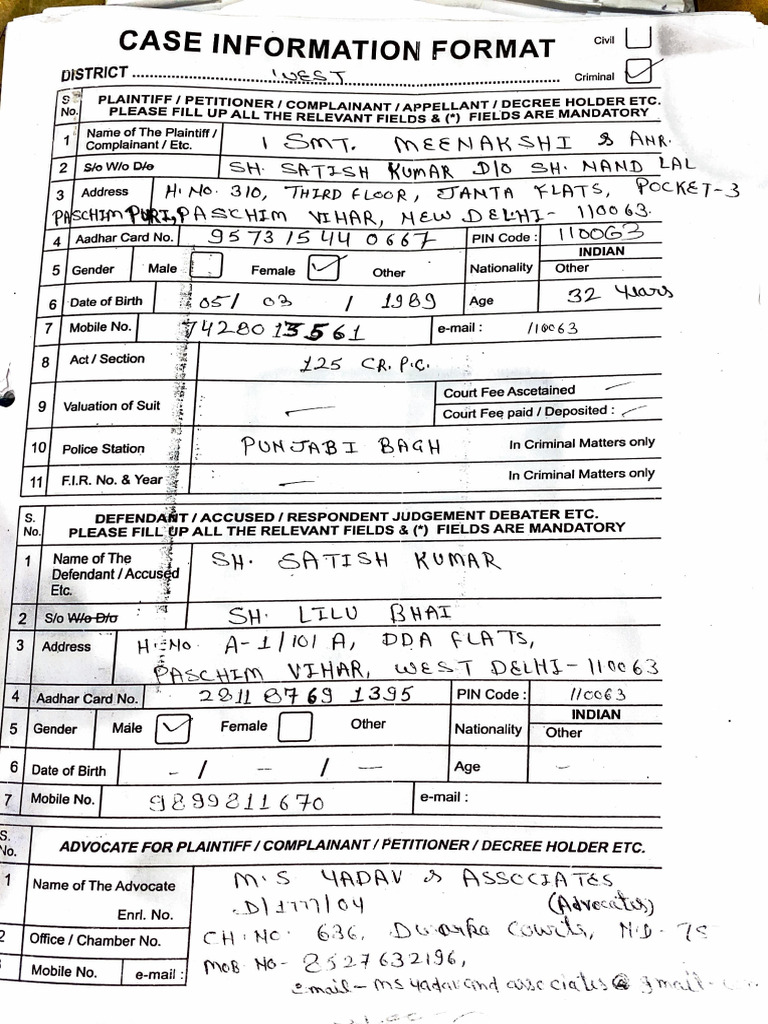 CASE INFORMATION FORMAT
Civil
DISTRICT WEST
Criminal ✓
S No. PLAINTIFF / PETITIONER / COMPLAINANT / APPELLANT / DECREE HOLDER ETC.
PLEASE FILL UP ALL THE RELEVANT FIELDS & (*) FIELDS ARE MANDATORY
1 Name of The Plaintiff / Complainant / Etc. 1 SMT. MEENAKSHI & ANR.
2 S/o W/o D/o SH. SATISH KUMAR D/O SH. NAND LAL
3 Address H. NO. 310, THIRD FLOOR, JANTA FLATS, POCKET-3
PASCHIM PURI, PASCHIM VIHAR, NEW DELHI- 110063.
4 Aadhar Card No. 9573 1544 0667 PIN Code : 110063
5 Gender Male Female ✓ Other Nationality INDIAN
Other
6 Date of Birth 05/ 03 / 1989 Age 32 Years
7 Mobile No. 7428013561 e-mail : 110063
8 Act / Section 125 CR.P.C.
9 Valuation of Suit — Court Fee Ascetained —
Court Fee paid / Deposited : —
10 Police Station PUNJABI BAGH In Criminal Matters only
11 F.I.R. No. & Year — In Criminal Matters only
S. No. DEFENDANT / ACCUSED / RESPONDENT JUDGEMENT DEBATER ETC.
PLEASE FILL UP ALL THE RELEVANT FIELDS & (*) FIELDS ARE MANDATORY
1 Name of The Defendant / Accused Etc. SH. SATISH KUMAR
2 S/o W/o D/o SH. LILU BHAI
3 Address H. NO. A-1/101 A, DDA FLATS,
PASCHIM VIHAR, WEST DELHI- 110063
4 Aadhar Card No. 2811 8769 1395 PIN Code : 110063
5 Gender Male ✓ Female Other Nationality INDIAN
Other
6 Date of Birth - / - / — Age -
7 Mobile No. 9899811670 e-mail :
S. No. ADVOCATE FOR PLAINTIFF / COMPLAINANT / PETITIONER / DECREE HOLDER ETC.
1 Name of The Advocate M.S YADAV & ASSOCIATES
Enrl. No. D/1777/04 (Advocates)
2 Office / Chamber No. CH. NO. 636, Dwarka Courts, N.D-
Mobile No. e-mail : MOB NO- 8527632196,
email- msyadavandassociates@gmail.